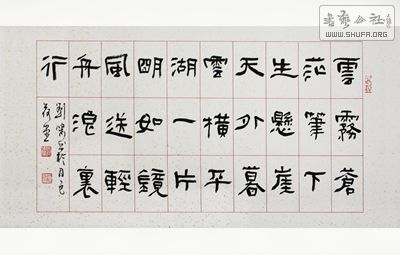 書藝公社
WWW.SHUFA.ORG
雲霧蒼
茫筆下
生懸崖
天外暮
雲橫平
湖一片
明如鏡
風送輕
舟浪裏
行